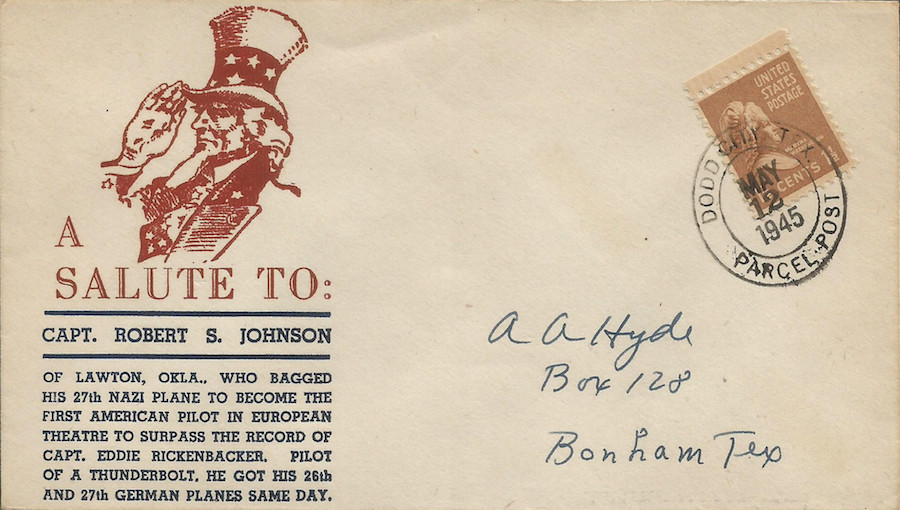 A
SALUTE TO:
CAPT. ROBERT S. JOHNSON
OF LAWTON, OKLA., WHO BAGGED
HIS 27th NAZI PLANE TO BECOME THE
FIRST AMERICAN PILOT IN EUROPEAN
THEATRE TO SURPASS THE RECORD OF
CAPT. EDDIE RICKENBACKER. PILOT
OF A THUNDERBOLT, HE GOT HIS 26th
AND 27th GERMAN PLANES SAME DAY.
UNITED
STATES
POSTAGE
CENTS
DODD CITY TX
MAY
12
1945
PARCEL POST
A A Hyde
Box 128
Bonham Tex